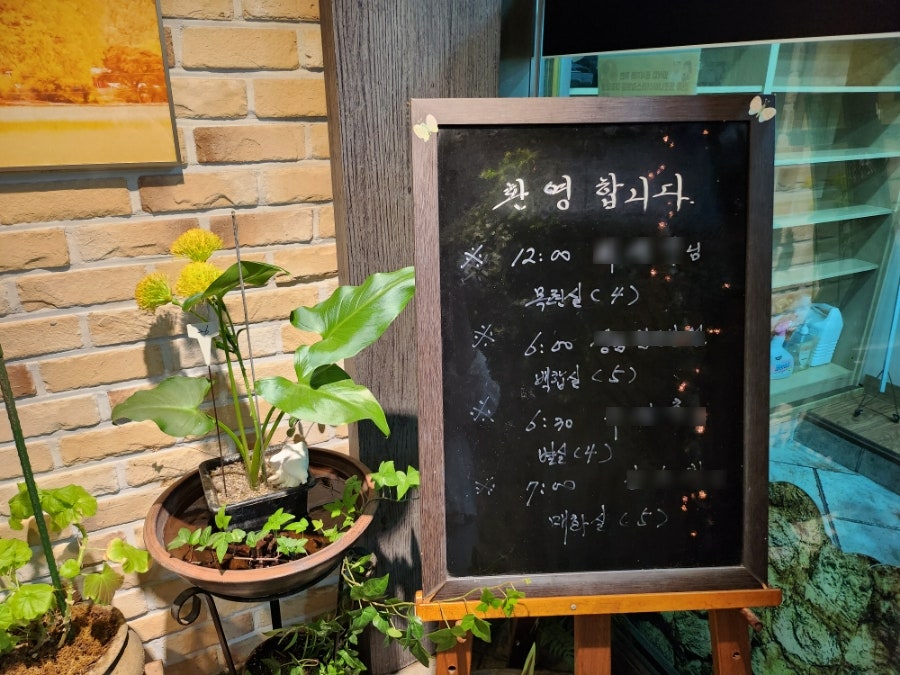 환영합니다.
※ 12:00 님
목련실(4)
※ 6:00
백합실(5)
※ 6:30
별실(4)
※ 7:00
매화실(5)